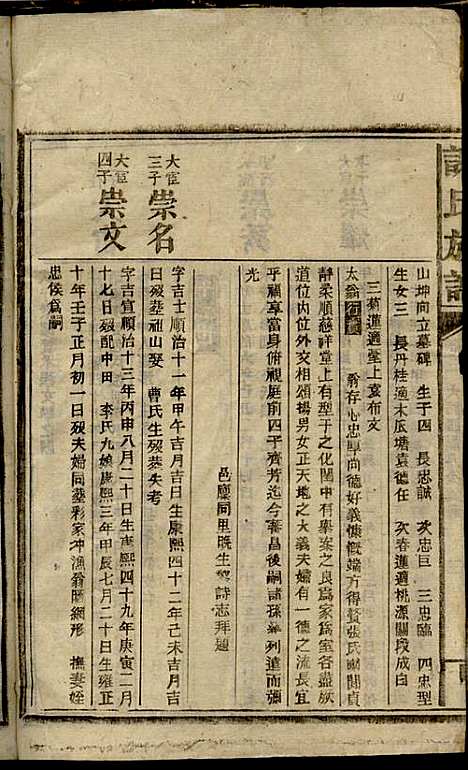 許氏族譜
山坤向立墓碑 生子四 長忠誠 次忠巨 三忠臨 四忠型
生女三 長丹桂適木瓜塘袁德任 次春蓮適桃源關段成白
三菊蓮適臺上袁布文
太翁行 翁存心忠厚尚德好義慷慨端方得贅張氏幽閒貞
靜柔順慈祥堂上有型于之化閨中有舉案之良為家為室各盡族
道位內位外交相頌揚男女正天地之大義夫婦有一德之流長宜
乎福享富身俯視庭前四子齊芳迄今蕃昌後嗣諸孫舉列遠而彌
光
邑廩同里晚生黎詩志拜題
大宦三子 崇名 字吉士順治十一年甲午吉月吉日生康熙四十二年己未吉月吉
日歿葬祖山娶 曹氏生歿葬失考
大宦四子 崇文 字吉宣順治十三年丙申八月二十日生康熙四十九年庚寅二月
十七日歿配中田 李氏九娘康熙三年甲辰七月二十日生雍正
十年壬子正月初一日歿夫婦同葬彩家冲漁翁晒網形 撫妻姪
忠侯為嗣